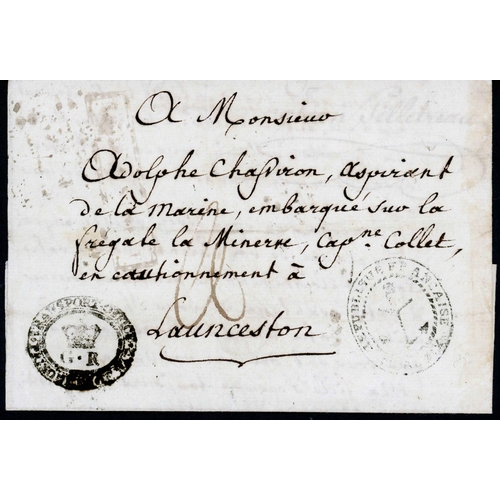 A Monsieur
Adolphe Chassiron, aspirant
de la marine, embarqué sur la
fregate la Minerve, Cap.ne Collet,
en cautionnement à
Launceston
TRANSPORT OFFICE
G·R
REPUBLIQUE FRANÇAISE